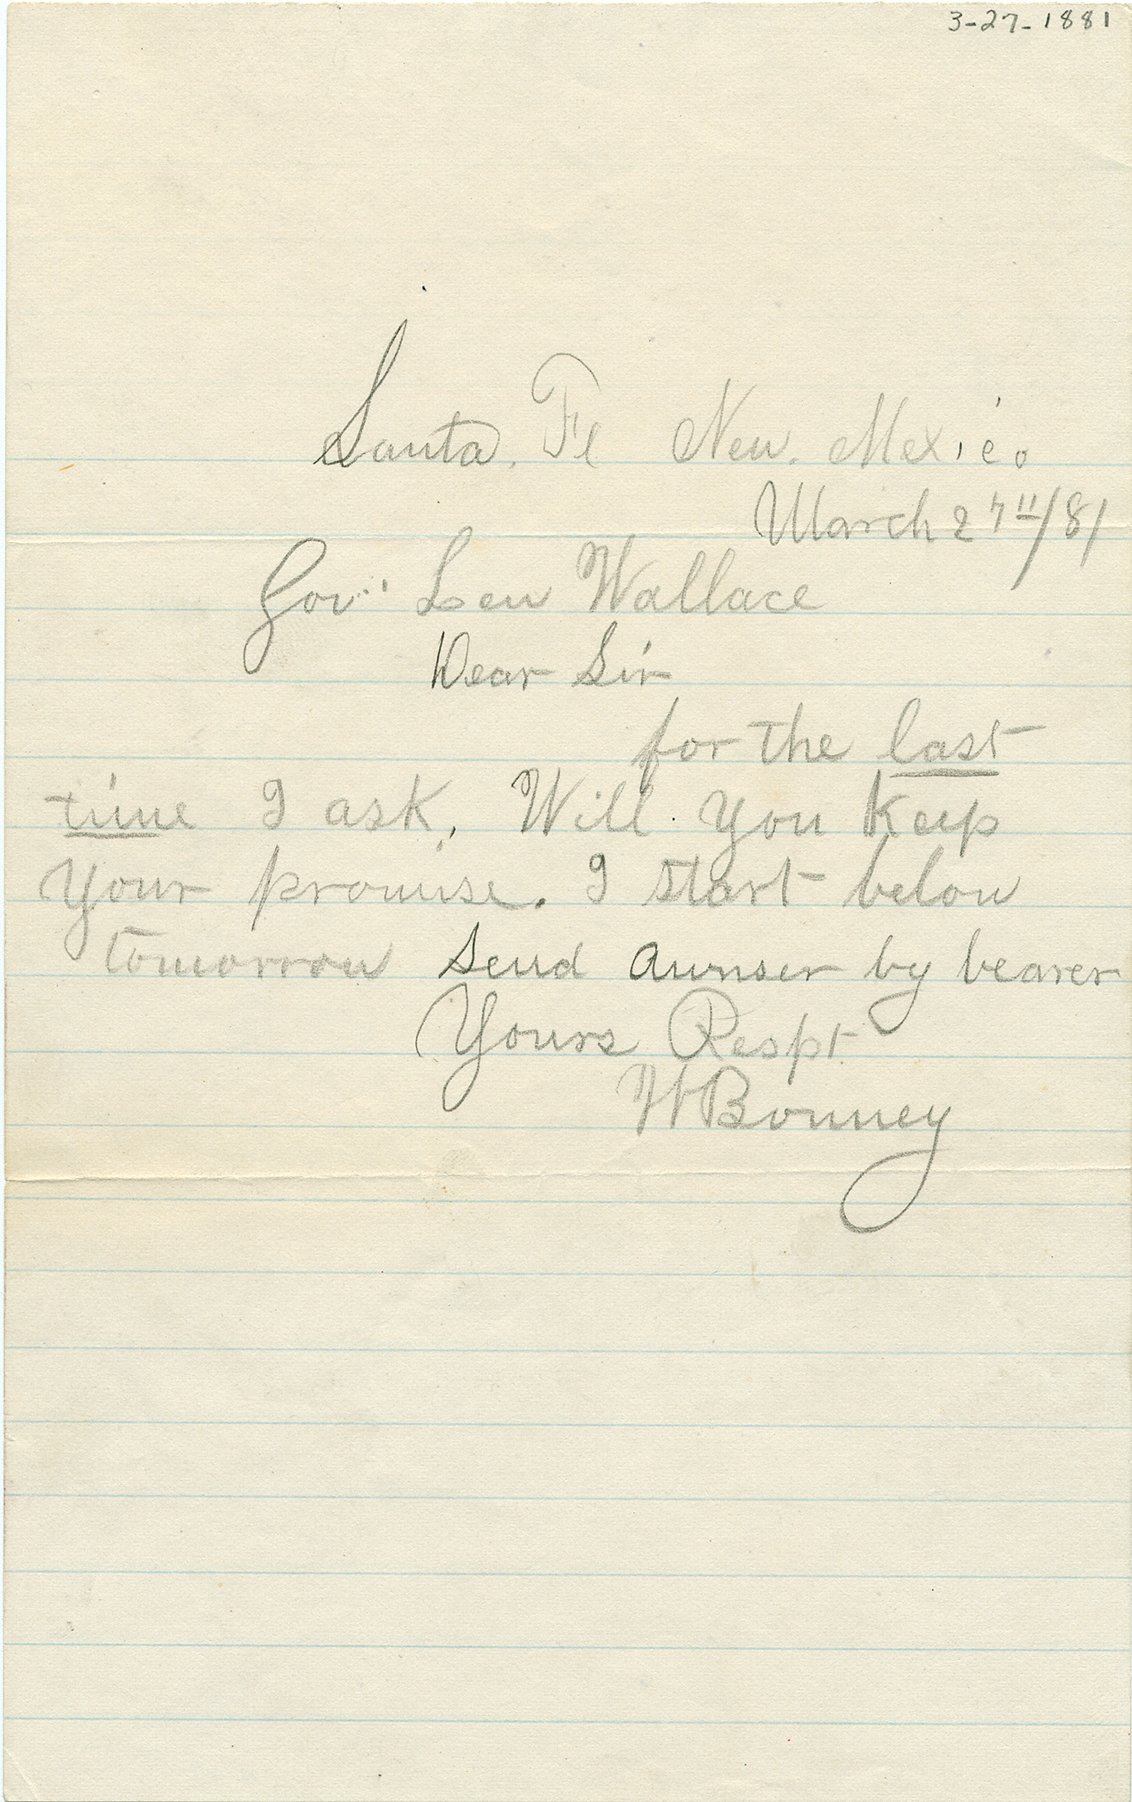 3-27-1881
Santa. Fe New. Mexico
March 27"/81
Gov. Lew Wallace
Dear Sir
for the last
time I ask, Will you Keep
Your promise. I start below
tomorrow Send Awnser by bearer
Yours Respt.
WBonney